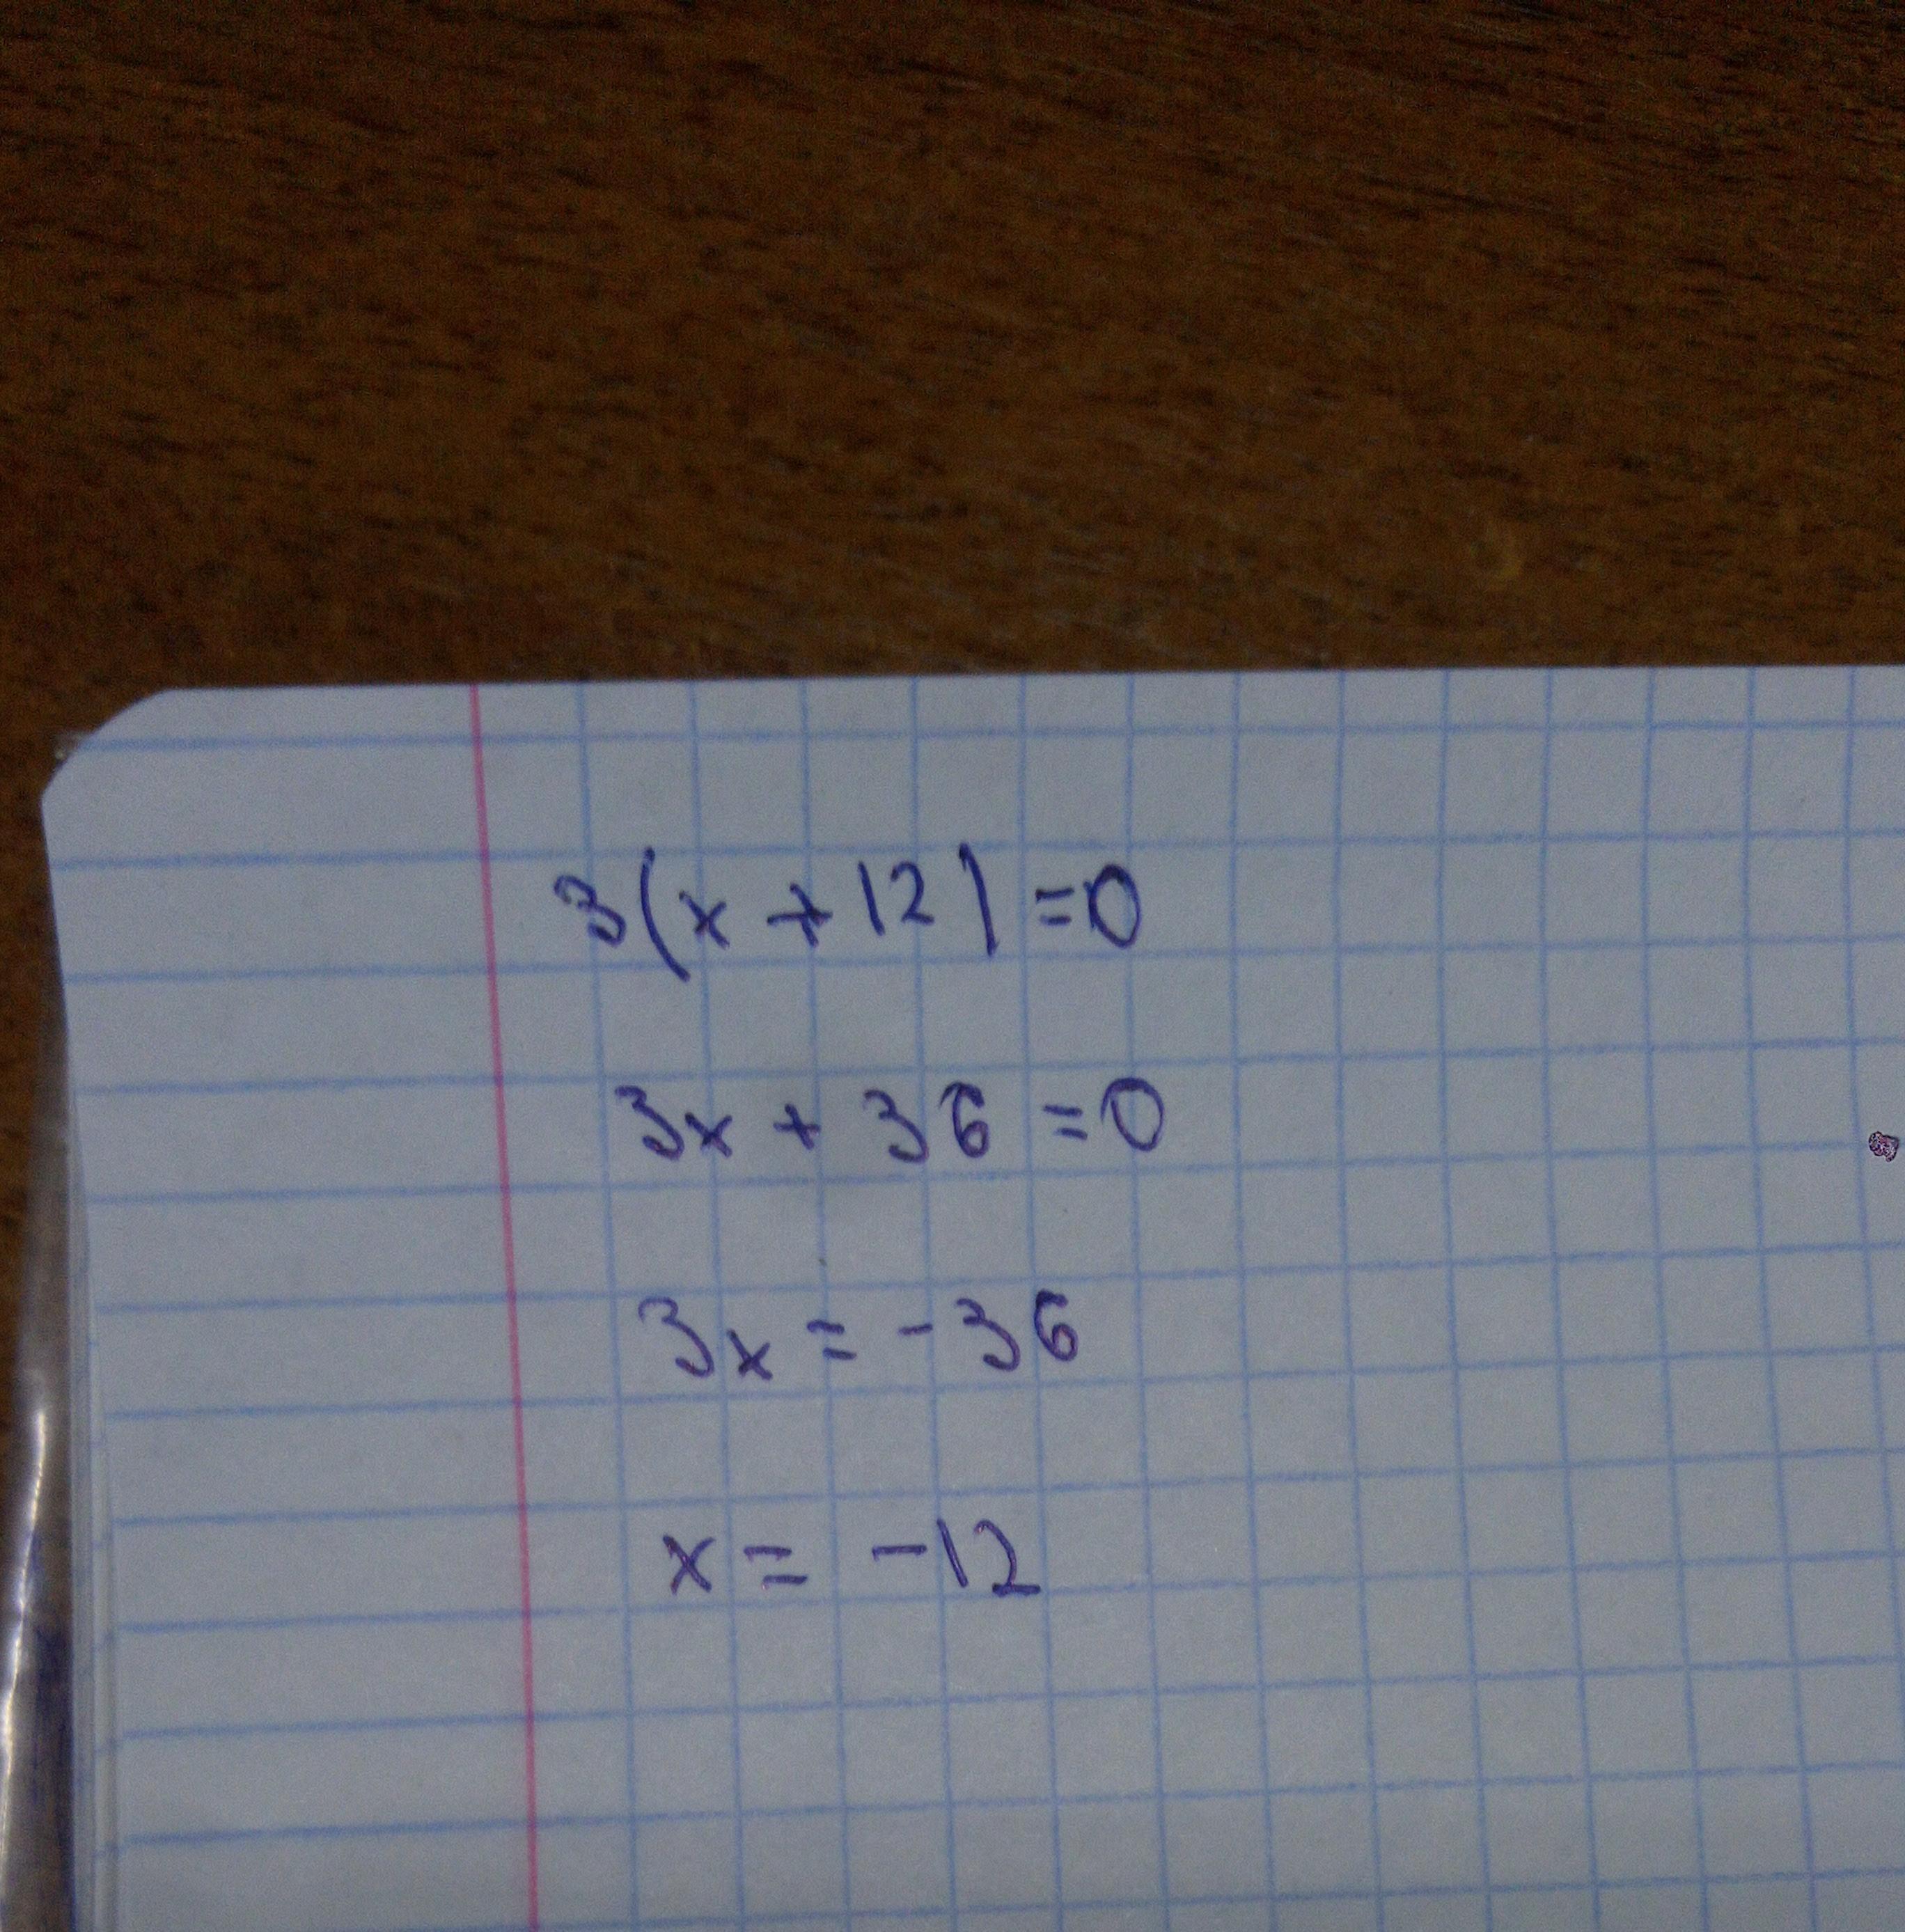 3(x + 12) = 0
3x + 36 = 0
3x = -36
x = -12